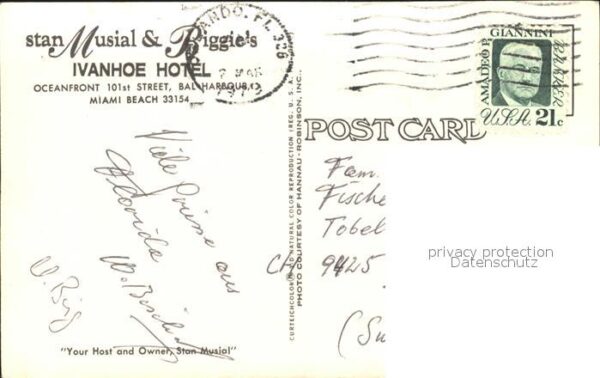 stan Musial & Biggie's
IVANHOE HOTEL
OCEANFRONT 101st STREET, BAL HARBOUR,
MIAMI BEACH 33154
ANDO, FL 328
MAR
AMADEO P. GIANNINI
BANKER
U.S.A. 21c
POST CARD
CURTEICHCOLOR 3-D NATURAL COLOR REPRODUCTION (REG. U.S.A.
PHOTO COURTESY OF HANNAU-ROBINSON, INC.
Viele Grüsse aus
Florida
Fam.
Fische
Tobel
CH 9425
(Su
privacy protection
Datenschutz
"Your Host and Owner, Stan Musial"